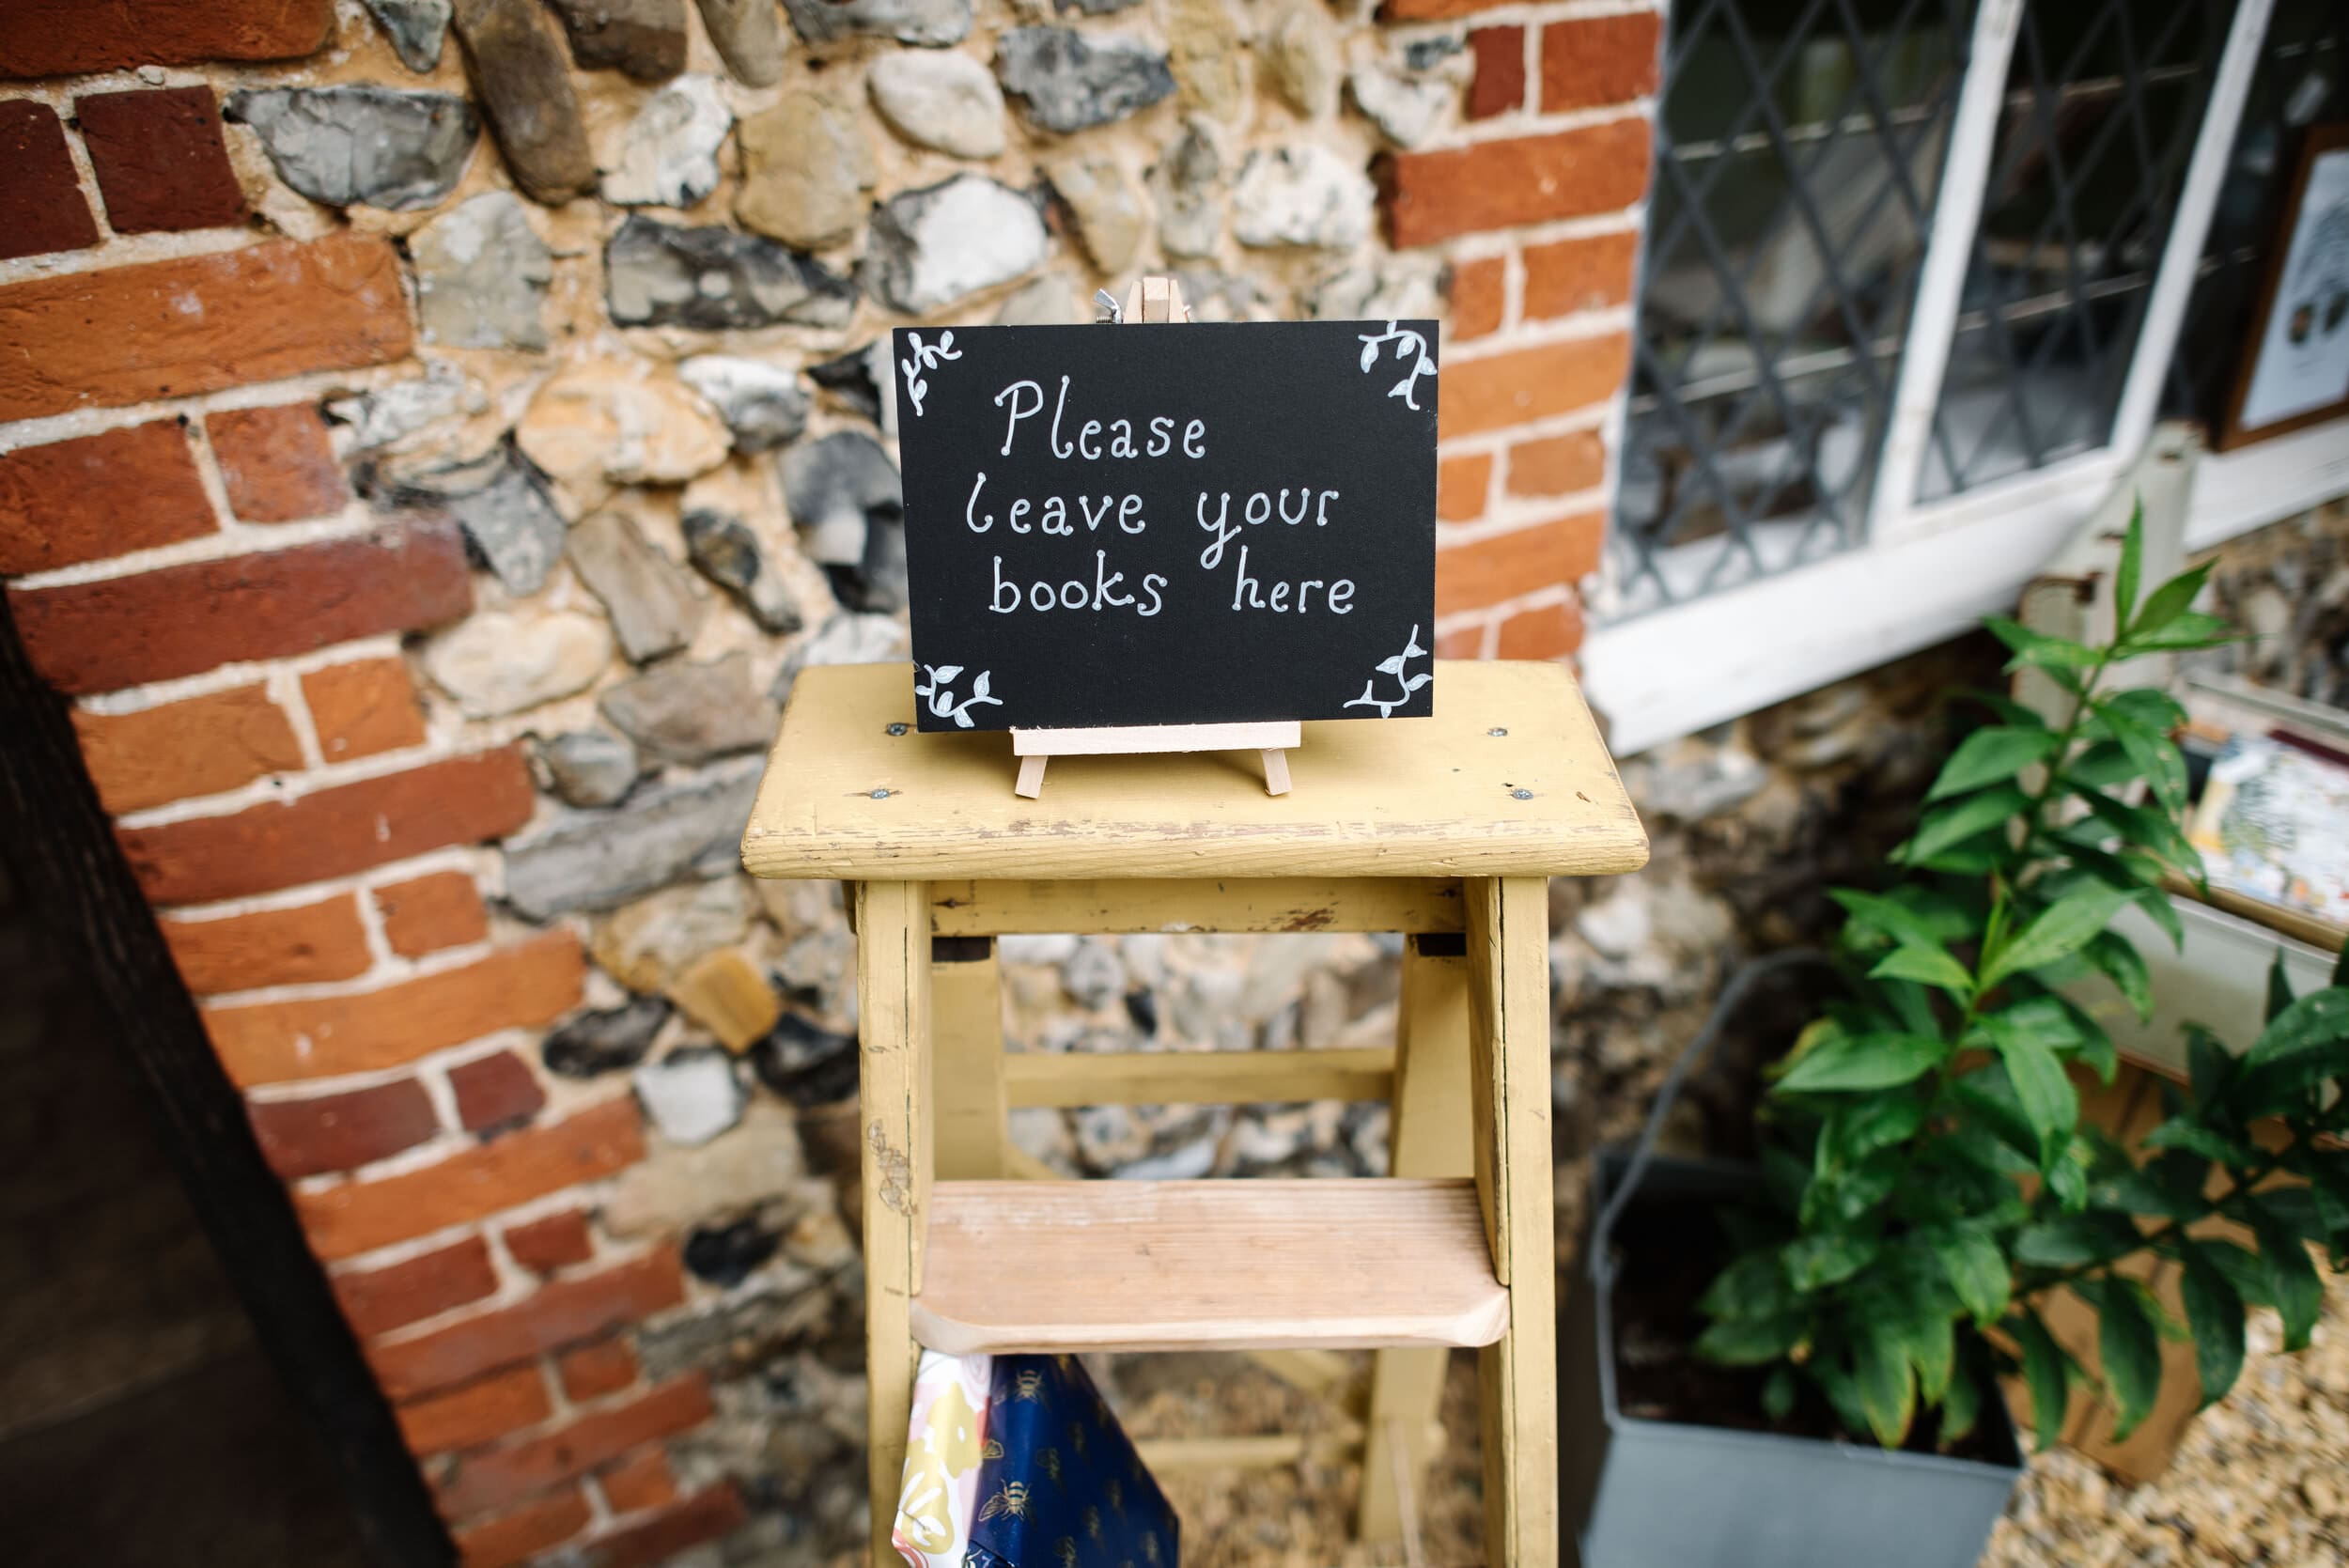 Please
leave your
books here